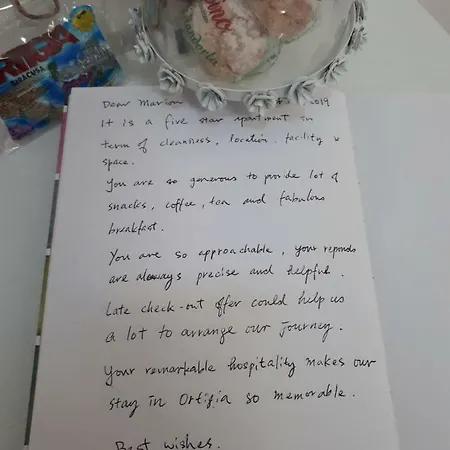 SIRACUSA
Dear Marion 2019
It is a five star apartment in
term of cleanness, location, facility &
space.
You are so generous to provide lot of
snacks, coffee, tea and fabulous
breakfast.
You are so approachable, your reponds
are always precise and helpful.
Late check-out offer could help us
a lot to arrange our journey.
Your remarkable hospitality makes our
stay in Ortigia so memorable.
Best wishes.